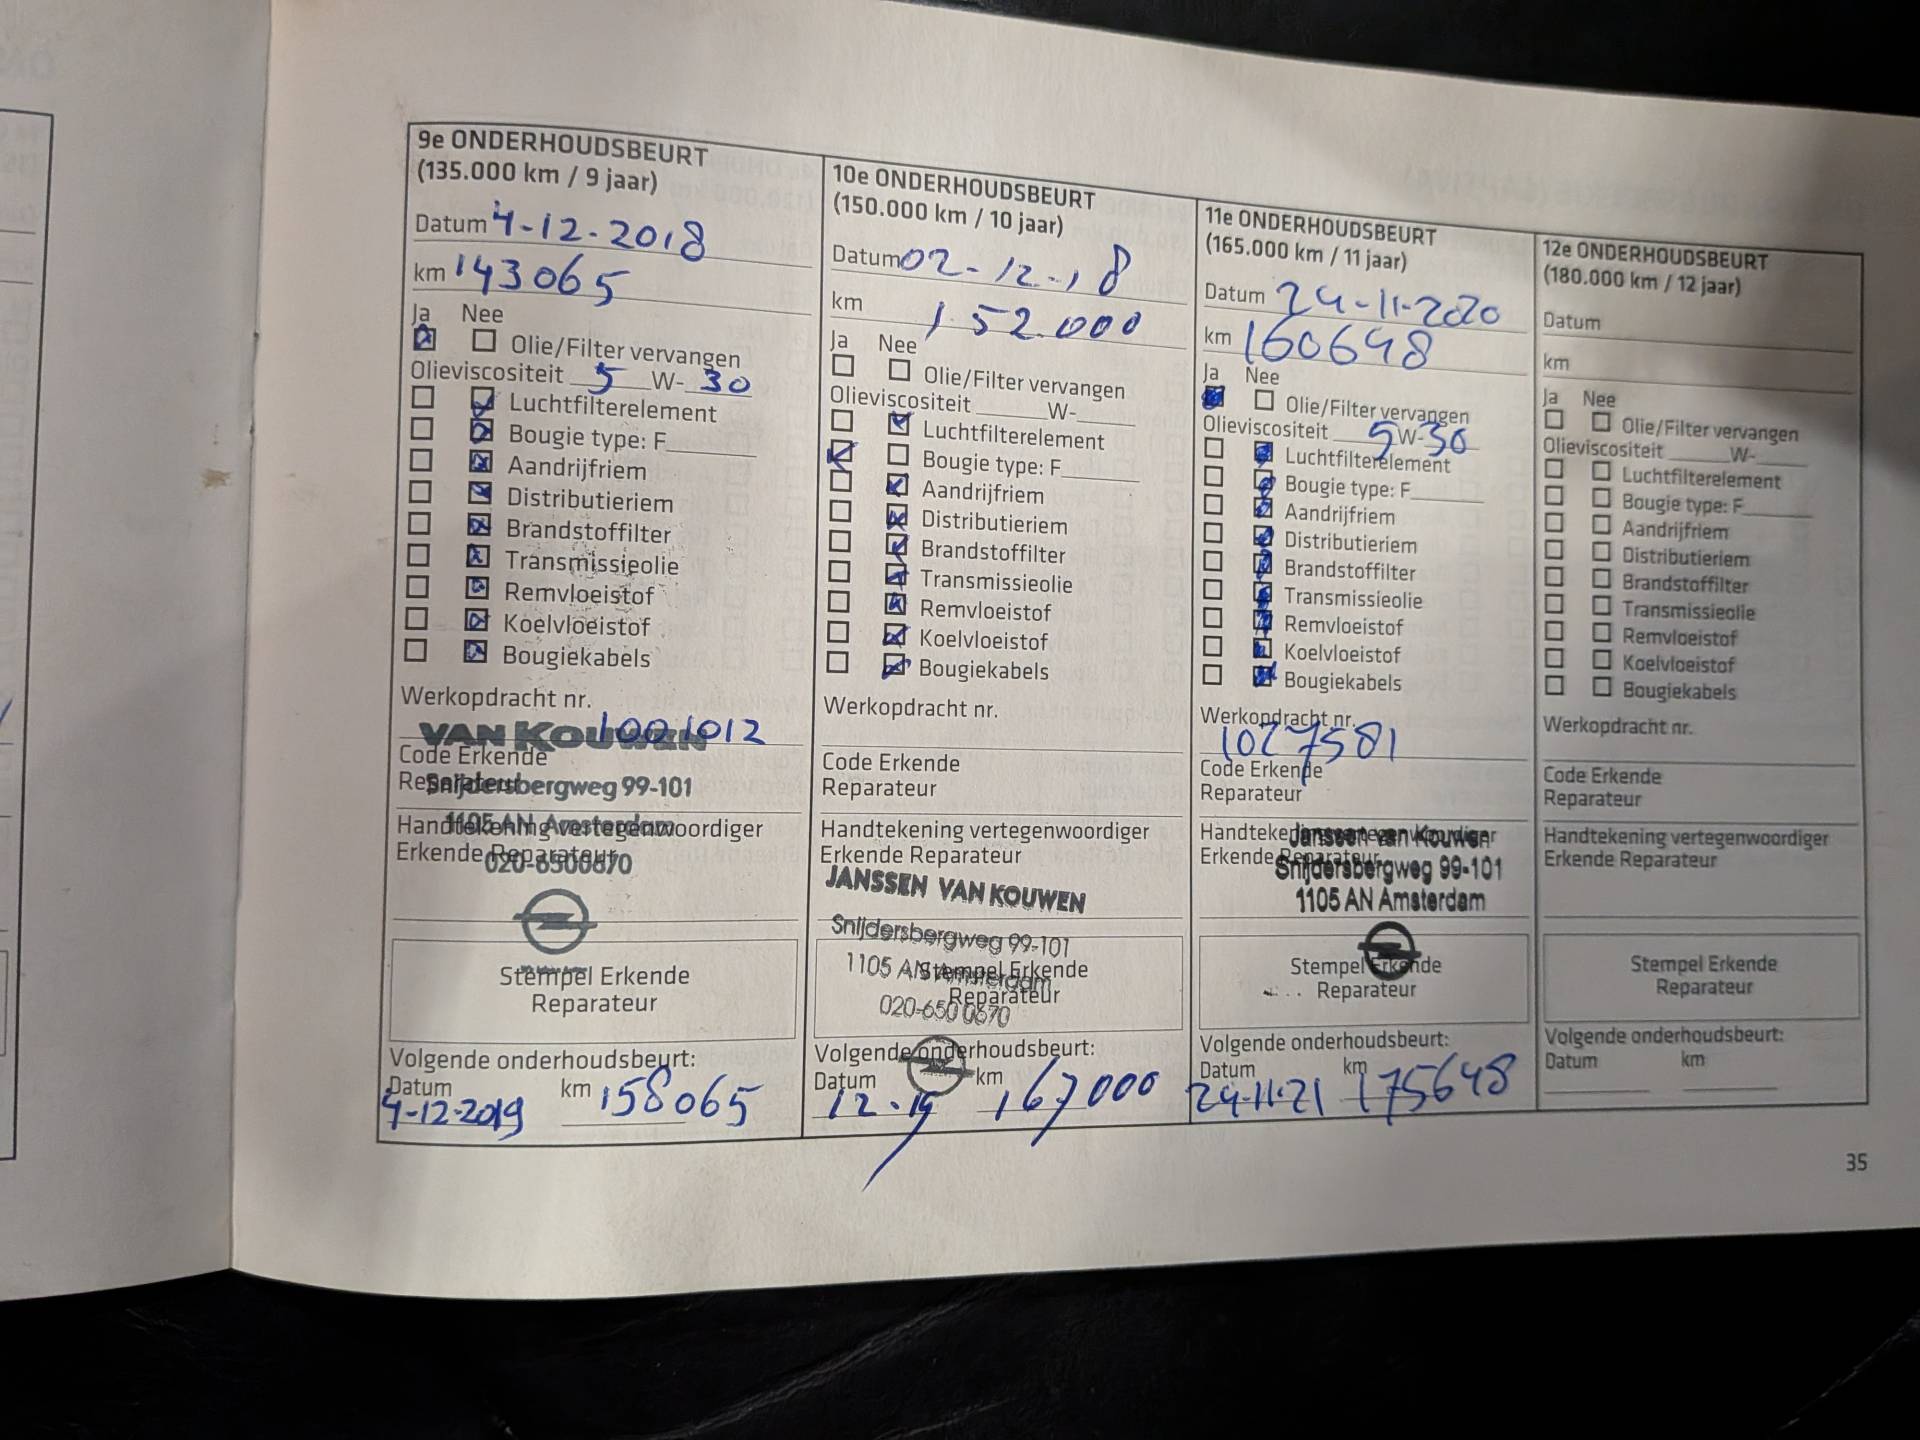 9e ONDERHOUDSBEURT
(135.000 km / 9 jaar)
Datum 4-12-2018
km 143065
Ja Nee
Olie/Filter vervangen
Olieviscositeit 5 W- 30
Luchtfilterelement
Bougie type: F
Aandrijfriem
Distributieriem
Brandstoffilter
Transmissieolie
Remvloeistof
Koelvloeistof
Bougiekabels
Werkopdracht nr.
1001012
VAN KOUWEN
Code Erkende
Reparateur
Snijdersbergweg 99-101
1105 AN Amsterdam
Handtekening vertegenwoordiger
Erkende Reparateur
020-6500670
Stempel Erkende
Reparateur
Volgende onderhoudsbeurt:
Datum km
4-12-2019 158065
10e ONDERHOUDSBEURT
(150.000 km / 10 jaar)
Datum 02-12-18
km 152.000
Ja Nee
Olie/Filter vervangen
Olieviscositeit W-
Luchtfilterelement
Bougie type: F
Aandrijfriem
Distributieriem
Brandstoffilter
Transmissieolie
Remvloeistof
Koelvloeistof
Bougiekabels
Werkopdracht nr.
Code Erkende
Reparateur
Handtekening vertegenwoordiger
Erkende Reparateur
JANSSEN VAN KOUWEN
Snijdersbergweg 99-101
1105 AN Amsterdam
Stempel Erkende
Reparateur
020-650 0670
Volgende onderhoudsbeurt:
Datum km
12-19 167000
11e ONDERHOUDSBEURT
(165.000 km / 11 jaar)
Datum 24-11-2020
km 160648
Ja Nee
Olie/Filter vervangen
Olieviscositeit 5 W- 30
Luchtfilterelement
Bougie type: F
Aandrijfriem
Distributieriem
Brandstoffilter
Transmissieolie
Remvloeistof
Koelvloeistof
Bougiekabels
Werkopdracht nr.
1027581
Code Erkende
Reparateur
Handtekening vertegenwoordiger
Erkende Reparateur
Janssen van Kouwen
Snijdersbergweg 99-101
1105 AN Amsterdam
Stempel Erkende
Reparateur
Volgende onderhoudsbeurt:
Datum km
24-11-21 175648
12e ONDERHOUDSBEURT
(180.000 km / 12 jaar)
Datum
km
Ja Nee
Olie/Filter vervangen
Olieviscositeit W-
Luchtfilterelement
Bougie type: F
Aandrijfriem
Distributieriem
Brandstoffilter
Transmissieolie
Remvloeistof
Koelvloeistof
Bougiekabels
Werkopdracht nr.
Code Erkende
Reparateur
Handtekening vertegenwoordiger
Erkende Reparateur
Stempel Erkende
Reparateur
Volgende onderhoudsbeurt:
Datum km
35